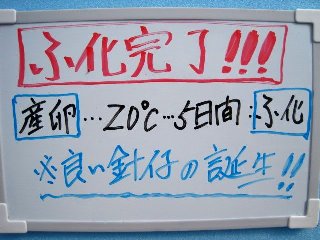 ふ化完了!!!
産卵…20℃…5日間…ふ化
※良い針仔の誕生!!